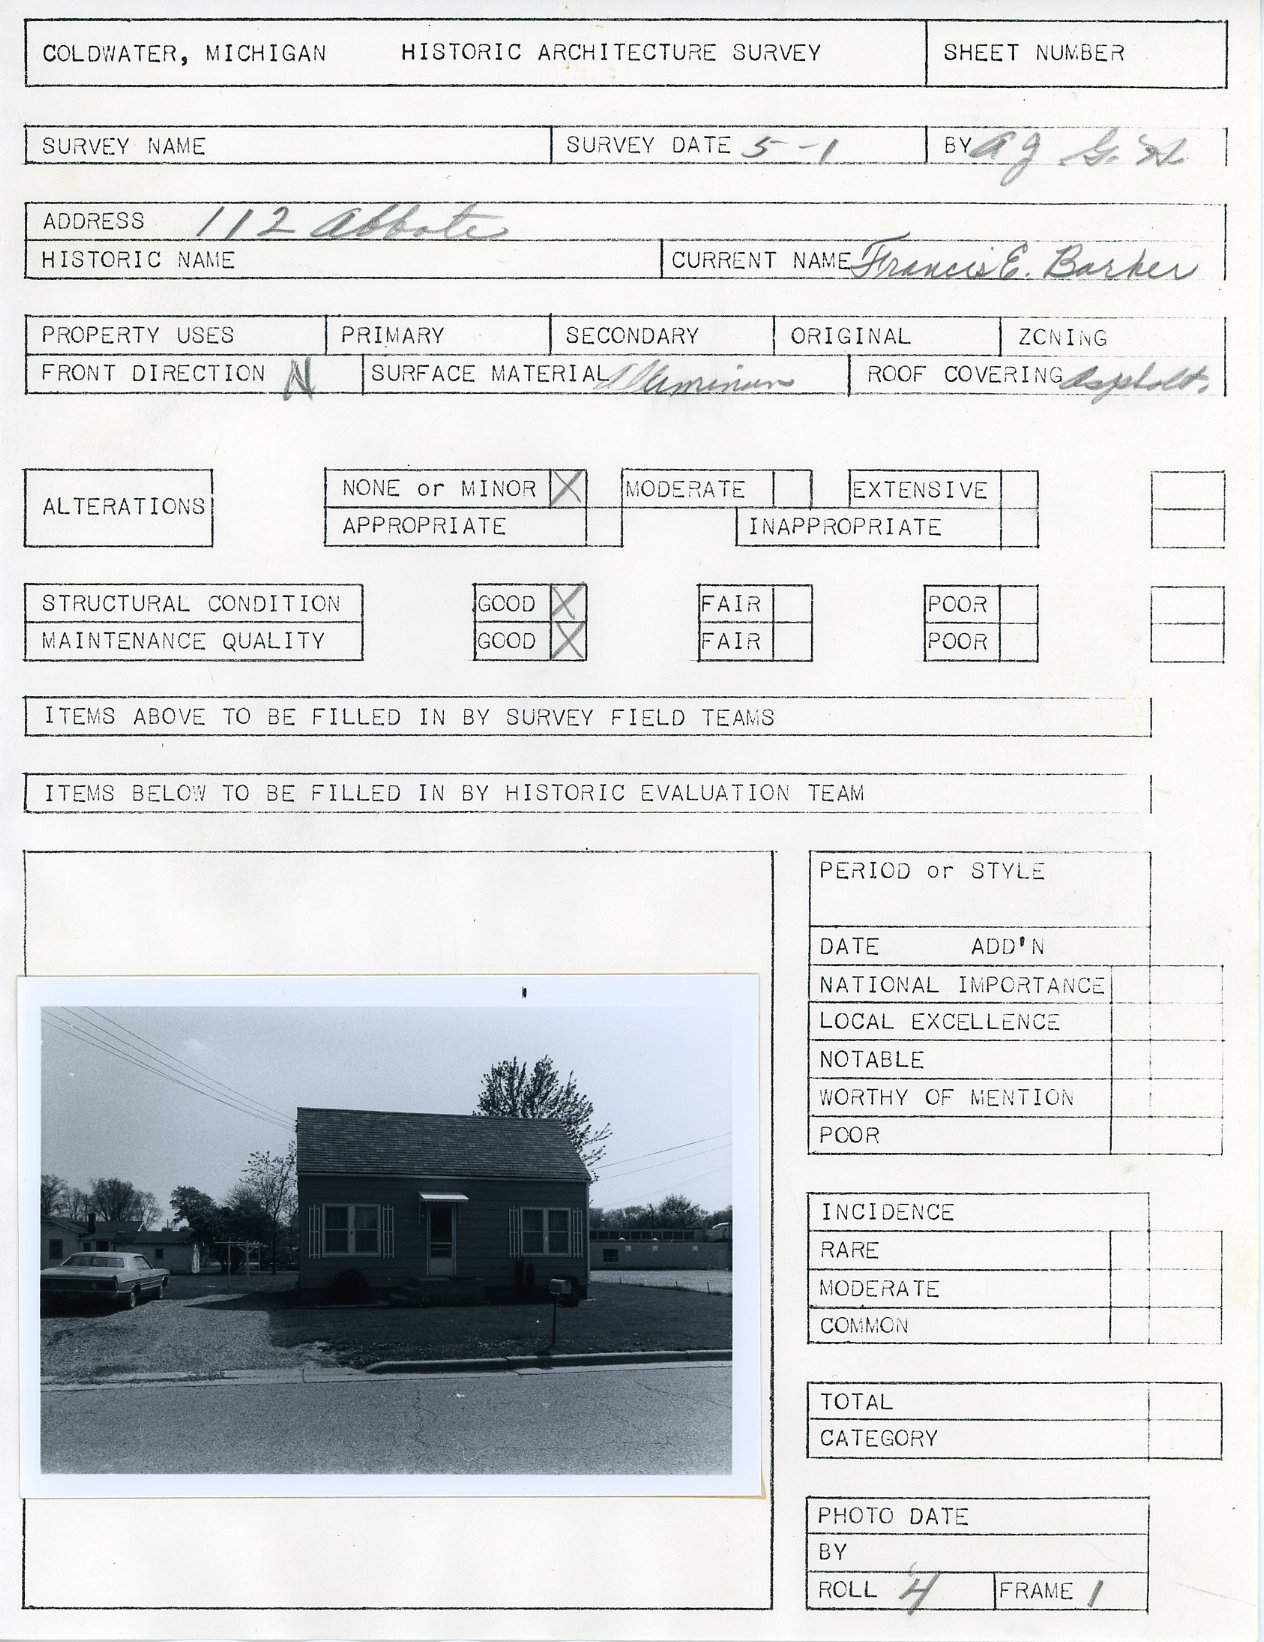 COLDWATER, MICHIGAN HISTORIC ARCHITECTURE SURVEY SHEET NUMBER
SURVEY NAME SURVEY DATE 5-1 BY A J G. H.
ADDRESS 112 Abbote
HISTORIC NAME CURRENT NAME Francis E. Barker
PROPERTY USES PRIMARY SECONDARY ORIGINAL ZONING
FRONT DIRECTION N SURFACE MATERIAL Aluminum ROOF COVERING Asphalt.
ALTERATIONS NONE or MINOR X MODERATE EXTENSIVE
APPROPRIATE INAPPROPRIATE
STRUCTURAL CONDITION GOOD X FAIR POOR
MAINTENANCE QUALITY GOOD X FAIR POOR
ITEMS ABOVE TO BE FILLED IN BY SURVEY FIELD TEAMS
ITEMS BELOW TO BE FILLED IN BY HISTORIC EVALUATION TEAM
PERIOD or STYLE
DATE ADD'N
NATIONAL IMPORTANCE
LOCAL EXCELLENCE
NOTABLE
WORTHY OF MENTION
POOR
INCIDENCE
RARE
MODERATE
COMMON
TOTAL
CATEGORY
PHOTO DATE
BY
ROLL 4 FRAME 1